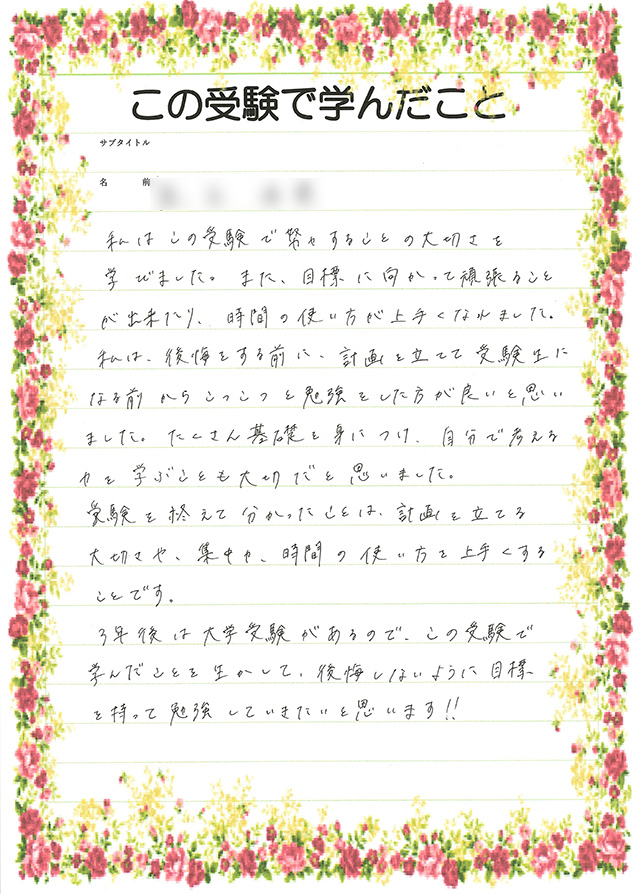 この受験で学んだこと
サブタイトル
名　前
私はこの受験で努力することの大切さを
学びました。また、目標に向かって頑張ること
が出来たり、時間の使い方が上手くなれました。
私は、後悔をする前に、計画を立てて受験生に
なる前からこつこつと勉強をした方が良いと思い
ました。たくさん基礎を身につけ、自分で考える
力を学ぶことも大切だと思いました。
受験を終えて分かったことは、計画を立てる
大切さや、集中力、時間の使い方を上手くする
ことです。
3年後は大学受験があるので、この受験で
学んだことを生かして、後悔しないように目標
を持って勉強していきたいと思います!!